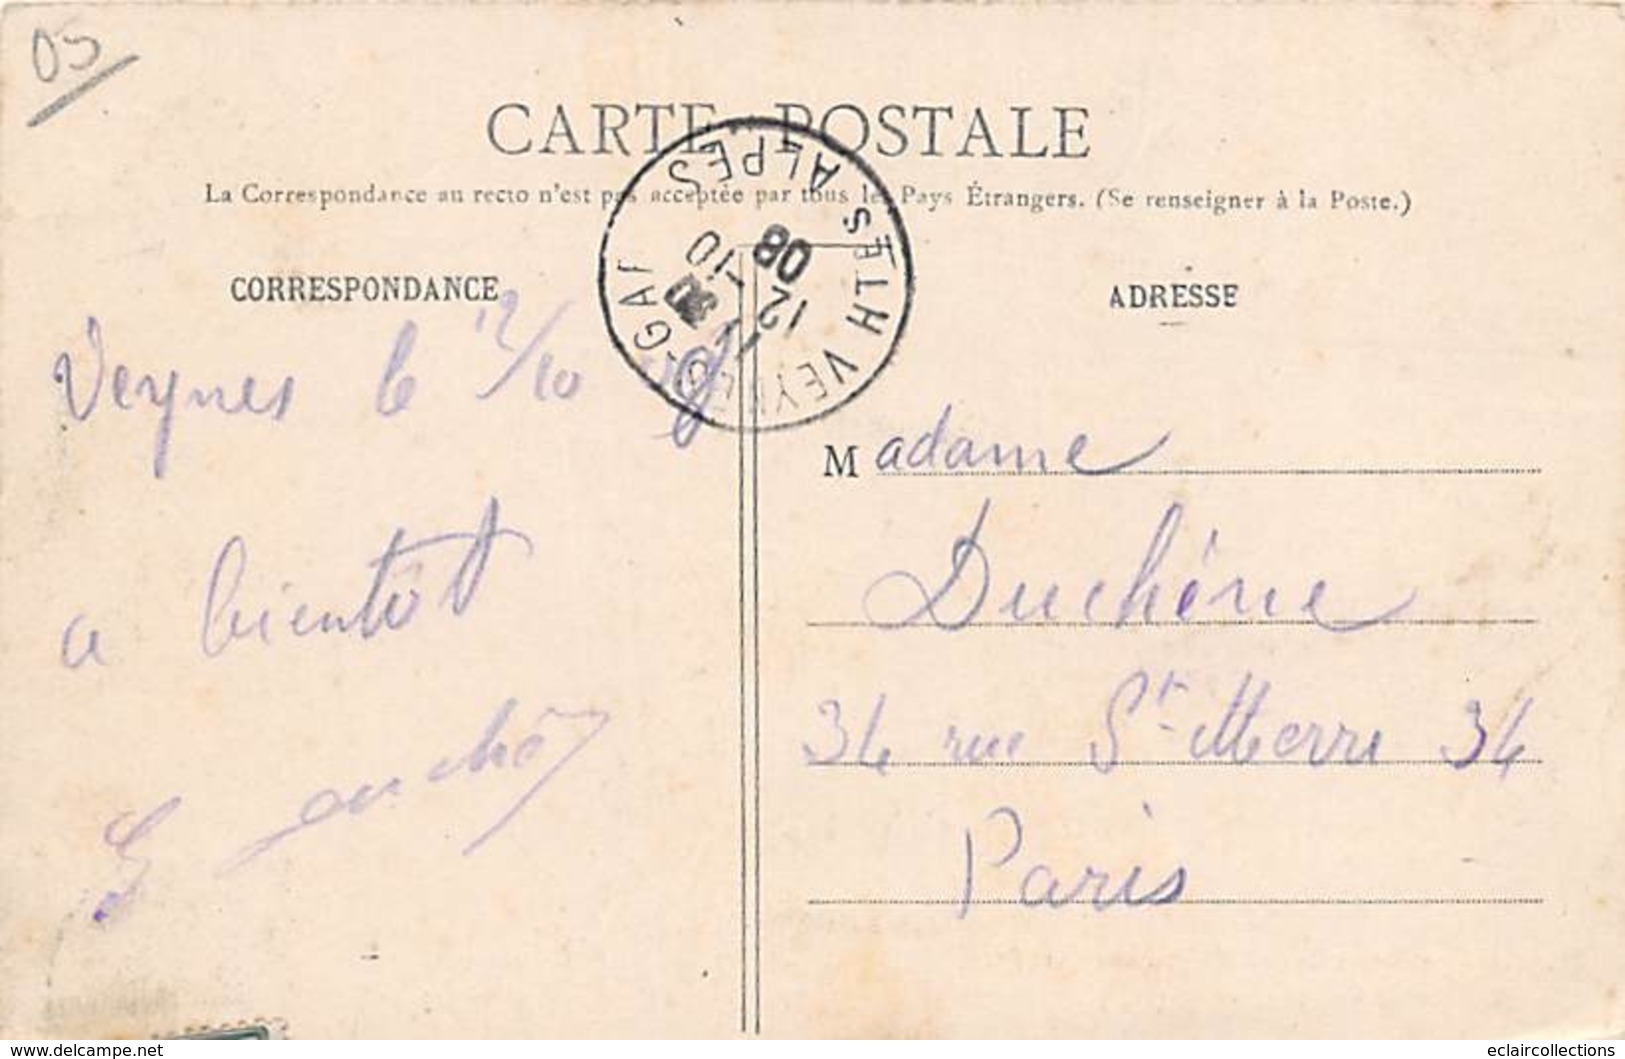 05
CARTE POSTALE
La Correspondance au recto n'est pas acceptée par tous les Pays Étrangers. (Se renseigner à la Poste.)
HTES ALPES
12-10
08
CORRESPONDANCE
Veynes le 12/10 08
a bientôt
ADRESSE
Madame
Duchêne
34 rue St-Merri 34
Paris
www.delcampe.net
eclaircollections